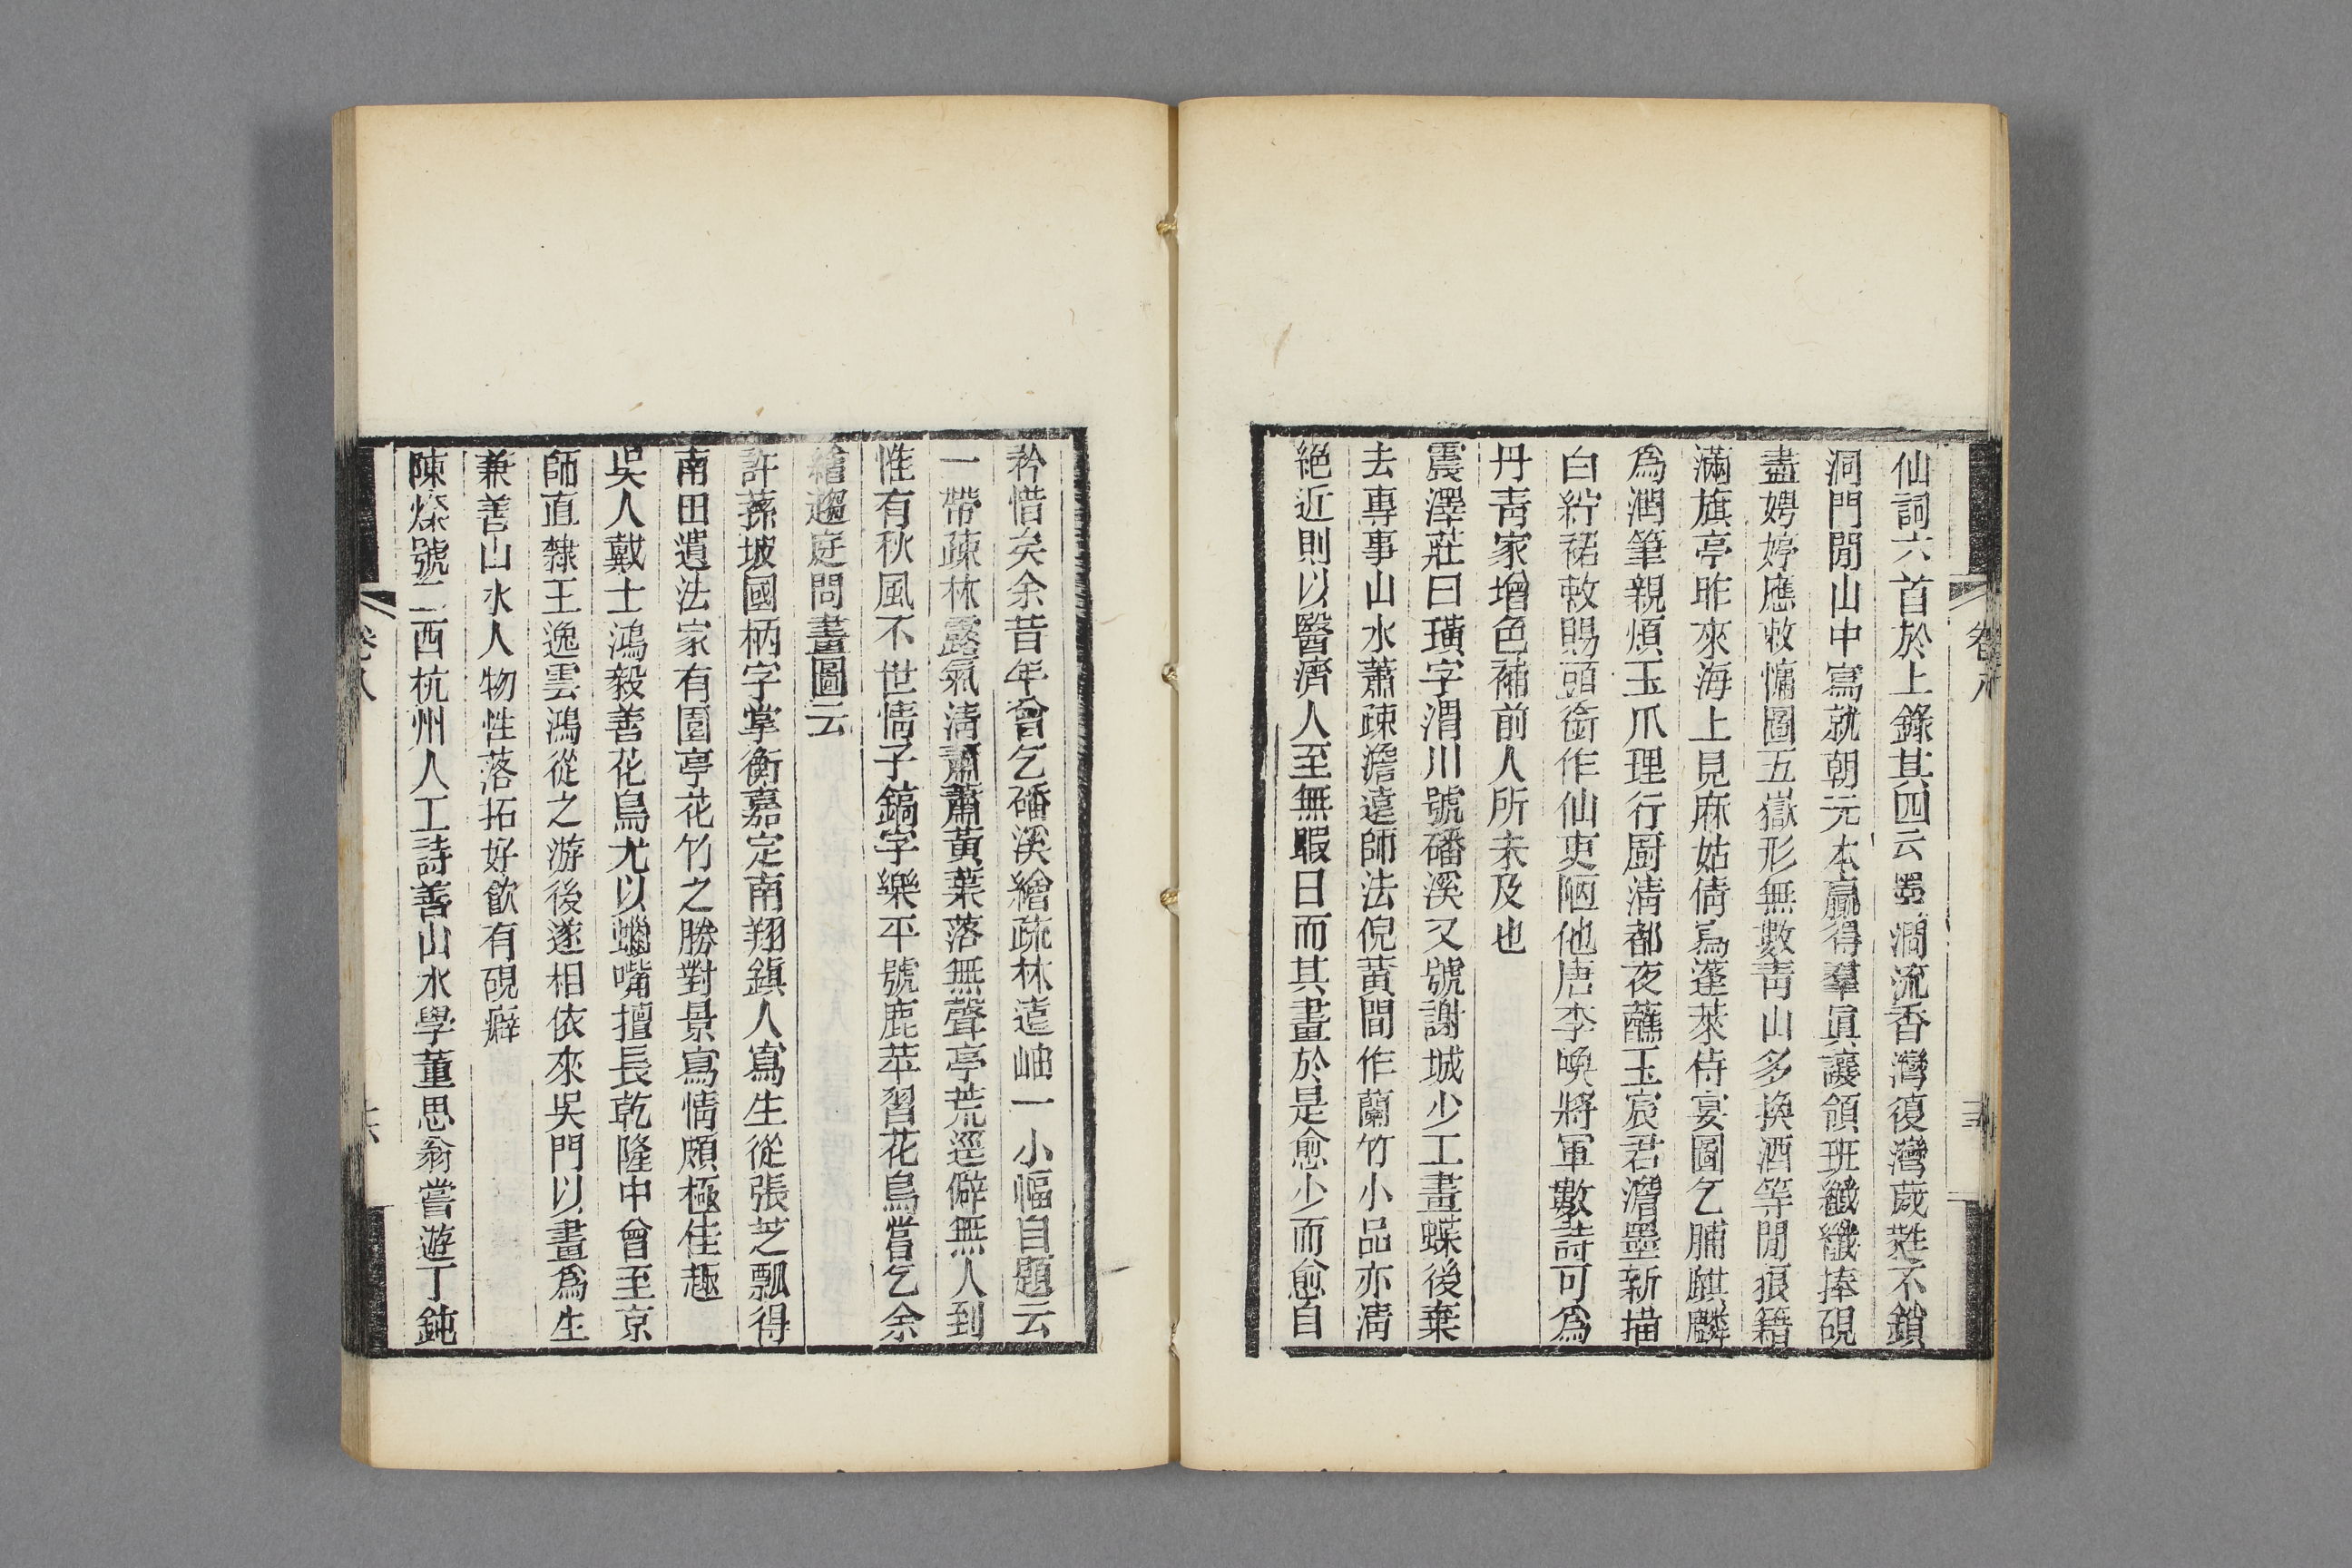 仙詞六首於上錄其四云墨澗流香灣復灣葳蕤不鎖
洞門閒山中寫就朝元本贏得羣眞讓領班纖纖捧硯
盡娉婷應敕慵圖五嶽形無數靑山多換酒等閒狼籍
滿旗亭昨來海上見麻姑倩寫蓬萊侍宴圖乞脯麒麟
爲潤筆親煩玉爪理行厨淸都夜蘸玉宸君澹墨新描
白紵裙敕賜頭銜作仙吏陋他唐李喚將軍數詩可爲
丹靑家增色補前人所未及也
震澤莊曰璜字渭川號磻溪又號謝城少工畫蝶後棄
去專事山水蕭疎澹遠師法倪黃間作蘭竹小品亦淸
絕近則以醫濟人至無暇日而其畫於是愈少而愈自
矜惜矣余昔年曾乞磻溪繪疏林遠岫一小幅自題云
一帶疎林露氣淸蕭蕭黃葉落無聲亭荒逕僻無人到
惟有秋風不世情子鎬字樂平號鹿苹習花鳥嘗乞余
繪趨庭問畫圖云
許蓀坡國柄字掌衡嘉定南翔鎭人寫生從張芝瓢得
南田遺法家有園亭花竹之勝對景寫情頗極佳趣
吳人戴士鴻毅善花鳥尤以蠟嘴擅長乾隆中曾至京
師直隸王逸雲鴻從之游後遂相依來吳門以畫爲生
兼善山水人物性落拓好飮有硯癖
陳燦號二西杭州人工詩善山水學董思翁嘗遊丁鈍
卷八
卷八